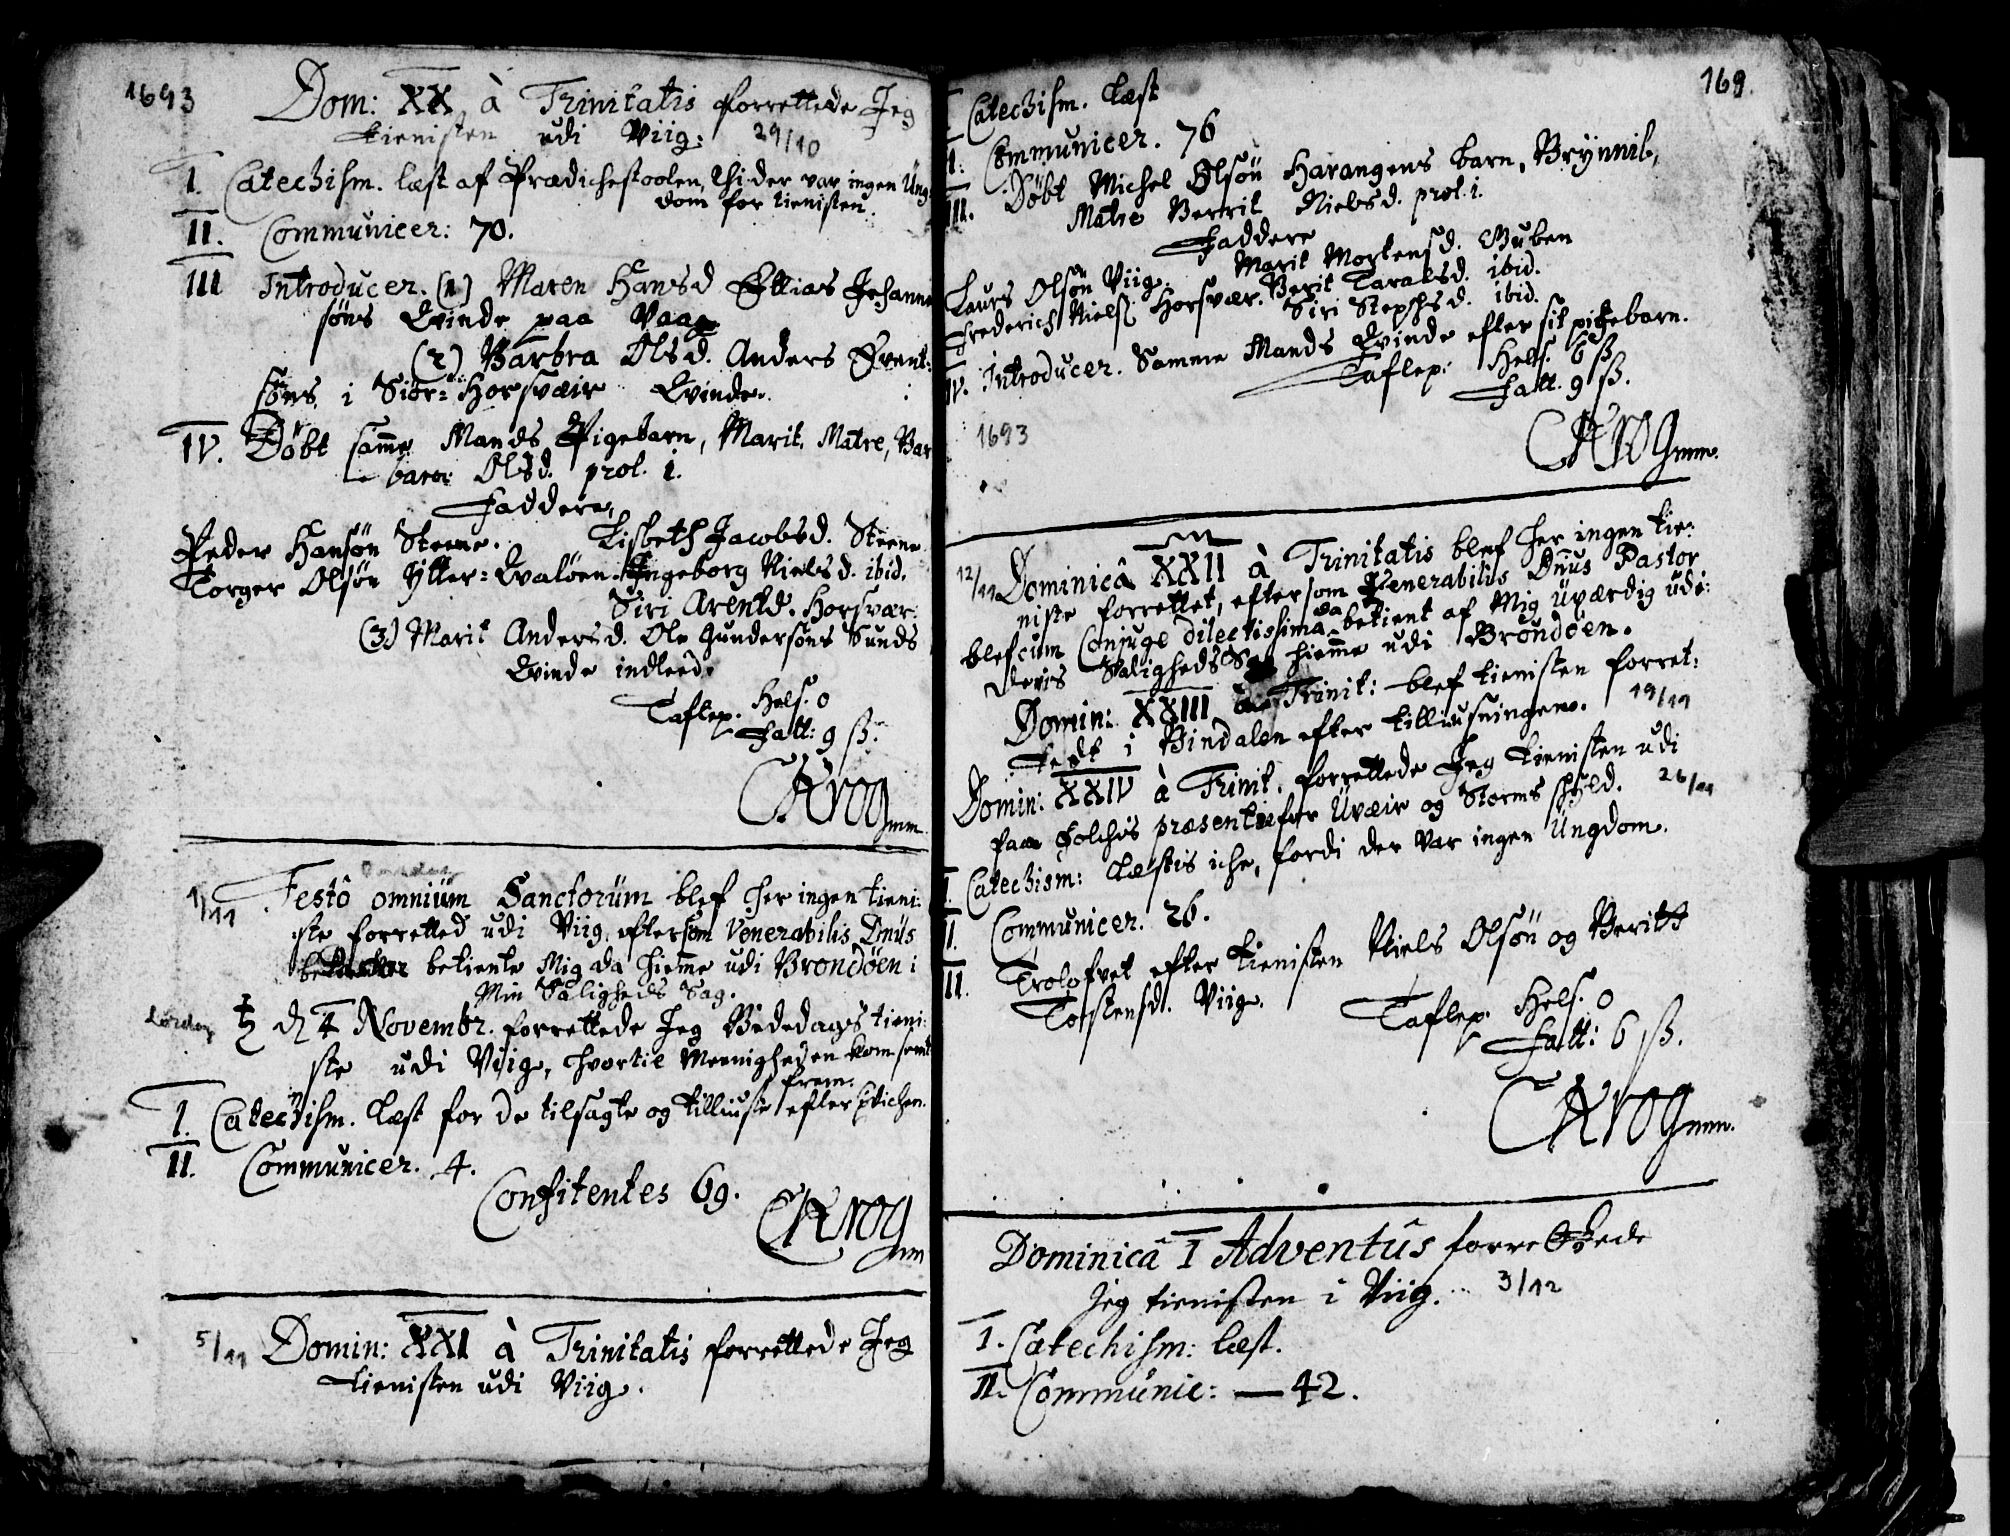 1693
Dom: XX, à Trinitatis forrettede Jeg
tienisten udi Viig: 29/10
I. Catechism. læst af Prædichestoolen, thi der var ingen Ung
dom for tienisten.
II. Communicer: 70.
III Introducer. (1) Maren Hansd Ellias Johanni
søns Qvinde paa Vaag
(2) Barbra Olsd. Anders Event:
søns, i Siør: Horsvær Qvinde.
IV. Døbt samme Mands Pigebarn, Marit. Matre, Bar
bara Olsd. prol. i.
Faddere,
Peder Hansøn Steene. Lisbeth Jacobsd. Steene
Torger Olsøn Ytter: Qvaløen. Ingeborg Nielsd. ibid.
Siri Arentd. Horsvær.
(3) Marit Andersd. Ole Gundersøns Sunds
Qvinde indleed.
Taflep. Hels. 0
Fatt: 9 ß.
CKrog mm.
1/11 Festô omnium Sanctorum blef her ingen tieni:
ste forretted udi Viig, eftersom Venerabilis Dnus
betiente Mig da hiemme udi Brøndøen i
Min Saligheds Sag.
Lørdag ♄ d 4 Novembr. forrettede Jeg Bededags tieni:
ste udi Viig, hvortil Meenigheden kom sent
frem.
I. Catechism. Læst for de tilsagte og tilliuste efter
II. Communicer. 4.
Confitentes 69.
CKrog mm
5/11 Domin: XXI à Trinitatis forrettede Jeg
tienisten udi Viig.
169
I. Catechism. Læst
II. Communicer. 76
III. Døbt Michel Olsøn Harangens barn, Brynnil,
Matre Berrit Nielsd. prol. i.
Faddere
Laurs Olsøn Viig. Marit Mortensd. Buben
Frederich Niels Horsvær. Berit Taralsd. ibid.
Siri Stephsd. ibid.
IV. Introducer. Samme Mands Qvinde efter sit pigebarn.
Taflep: Hels. 6 ß
Fatt. 9 ß.
1693
CKrog mm.
12/11 Dominicâ XXII à Trinitatis blef her ingen tie:
niste forrettet, eftersom Venerabilis Dnus Pastor
blef cum Conjuge dilectissima da betient af Mig uværdig udi:
deris Saligheds Sag hiemme udi Brøndøen.
Domin: XXIII à Trinit: blef tienisten forret:
tedt i Bindalen efter tilliusningen. 19/11
Domin: XXIV à Trinit. forrettede Jeg tienisten udi
faa Folchis præsentie for Uvæir og Storms schyld. 26/11
I. Catechism: Læstis iche, fordi der var ingen Ungdom.
II. Communicer. 26.
III. Trolofvet efter tienisten Niels Olsøn og Beritt
Torstensd. Viig.
Taflep. Hels. 0
Fatt: 6 ß.
CKrog mm.
Dominicâ I Adventûs forrettede
Jeg tienisten i Viig. 3/12
I. Catechism: læst.
II. Communic: — 42.